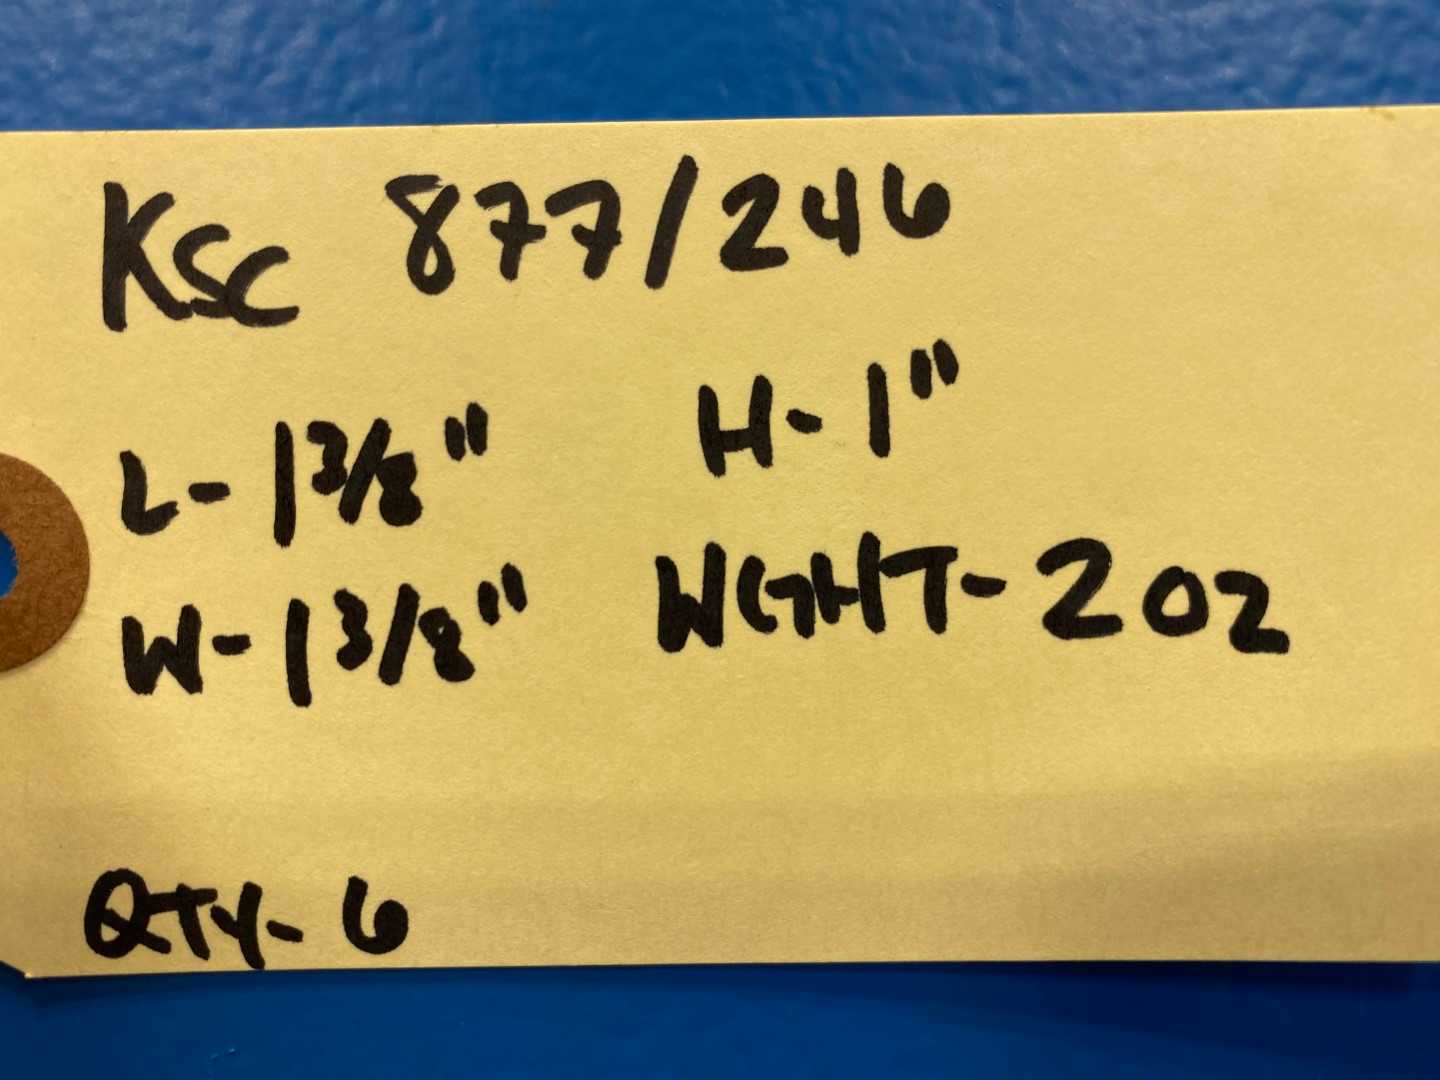 KSC 877/246
L- 1 3/8" H- 1"
W- 1 3/8" WGHT- 2oz
QTY- 6